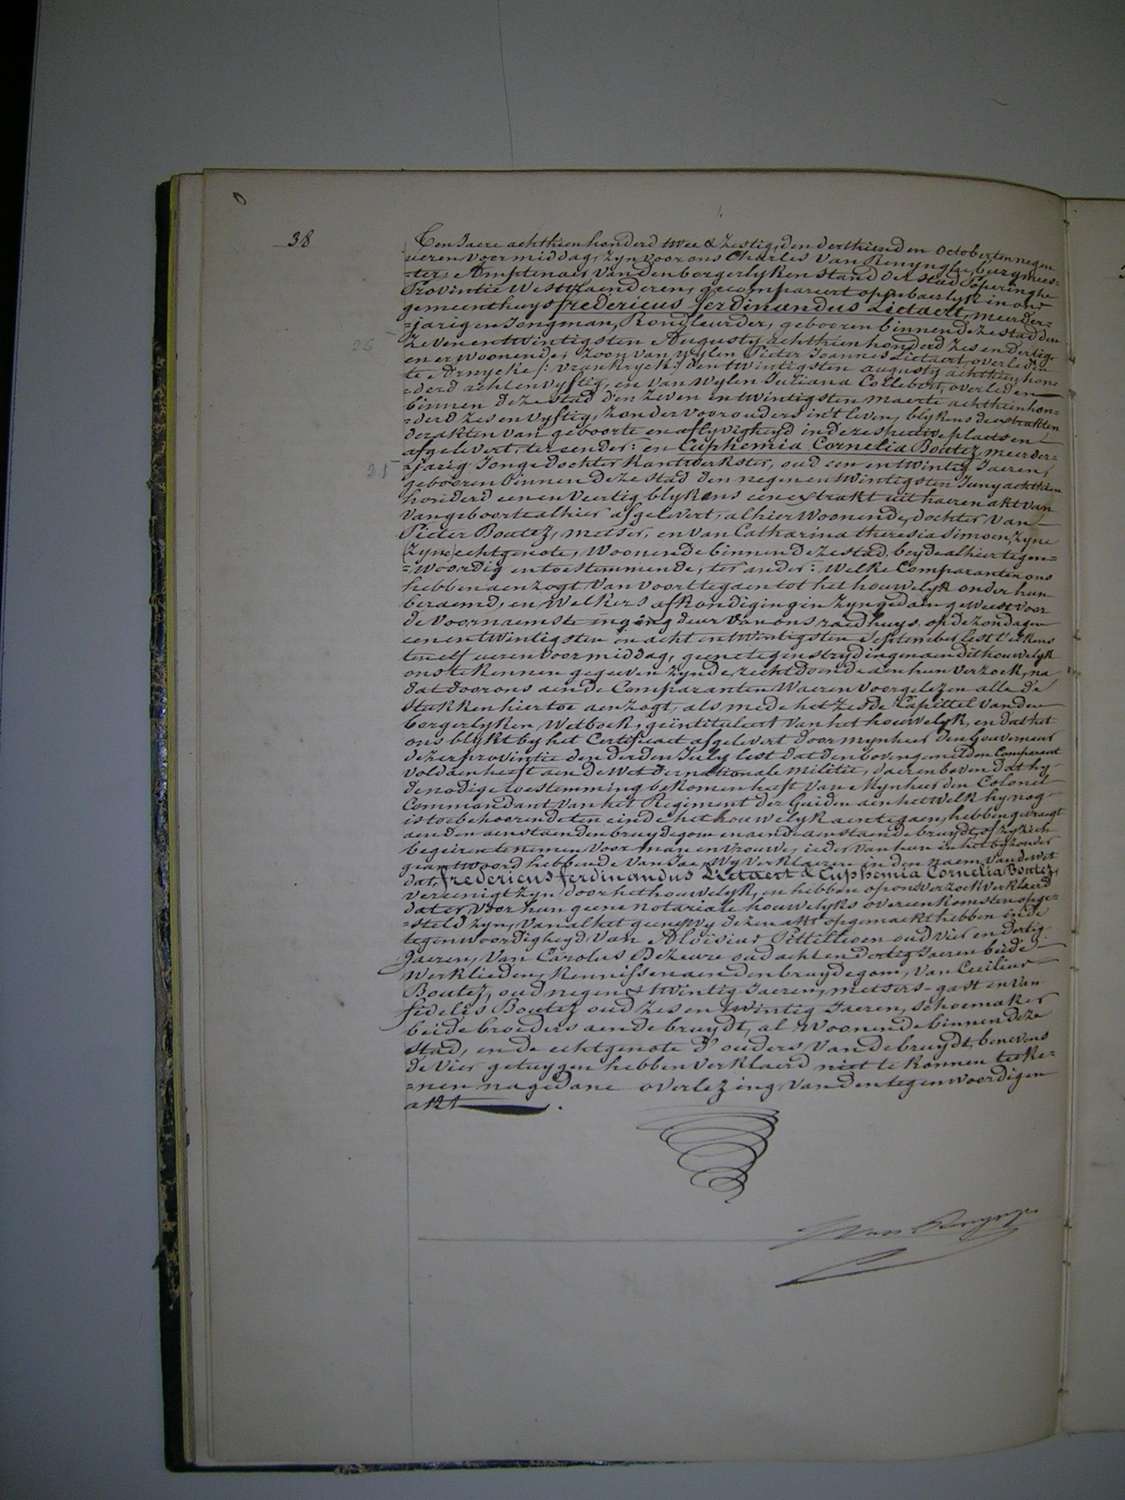 38
Ten Jaere achthien honderd twee & Zestig, den derthienden October ten negen
ueren voormiddag, Zyn voor ons Charles Van Renynghe, burgmees=
=ter, Amptenaer van den borgerlyken stand der stad Poperinghe
Provintie Westvlaenderen, gecompareert op publyk in ons
gemeentehuys Fredericus Ferdinandus Lietaert, meerder=
=jarigen Jongman, Rondleurder, geboeren binnen deze stad den
26 Zeven en twintigsten Augusty achthien honderd Zes en dertig
en er Woonende, Zoon van wylen Pieter Joannes Lietaert, overleden
te Arnycke /: Vrankryck :/ den twintigsten augusty achthien hon=
=derd acht en vyftig, en van Wylen Juliana Collebert, overleden
binnen deze stad den Zeven en twintigsten maerte achthien hon=
=derd Zes en vyftig, zonder voorouders in 't leven, blykens de extrakten
der akten van geboorte en aflyvigheyd in de respective plaetsen
afgelevert, ter eender: en Euphemia Cornelia Boutez, meerder=
21 =jarig Jongedochter Kantwerkster, oud een en twintig Jaeren,
geboeren binnen deze stad den negen en twintigsten Juny achthien
honderd een en veertig blykens een extrakt uit haeren akt van
van geboorte alhier afgelevert, alhier Woonende, dochter van
Pieter Boutez, metser, en van Catharina theresia Simoen, zyne
Zyne echtgenote, Woonende binnen deze stad, beyde alhier tegen=
=woordig en toestemmende, ter ander: Welke Comparanten ons
hebben aenzogt van voort te gaen tot het houwelyk onder hun
beraemd, en Welkers afkondigingen zyn gedaen geweest voor
de voornaemste ingang deur van ons raedhuys op de zondagen
een en twintigsten en acht en twintigsten September lest t'elkens
ten elf ueren voormiddag, geene tegenstrydingen aen dit houwelyk
ons te kennen gegeven zynde, recht doende aen hun verzoek, na
dat door ons aen de Comparanten Waeren voorgelezen alle de
stukken hier toe aenzogt, als mede het zesde Capittel van den
borgerlyken Wetboek, geïntituleert van het houwelyk, en dat het
ons blykt by het Certificaet afgelevert door mynheer den Gouverneur
dezer provintie den derden July lest dat den bovengemelden Comparant
voldaen heeft aen de Wet der nationale militie, daerenboven dat hy
de nodige toestemming bekomen heeft van Mynheer den Colonel
Commandant van het Regiment der Guiden aen het welk hy nog
is toebehoorende ten einde het houwelyk aen te gaen, hebben gevraegt
aen den aenstaenden bruydegom en aen de aenstaende bruydt, of zy zich
begeiren te nemen voor man en vrouwe, ieder van hun in het byzonder
geantwoord hebbende van Jae, Wy verklaeren in den naem van de wet
dat, Fredericus Ferdinandus Lietaert & Euphemia Cornelia Boutez,
vereenigt zyn door het houwelyk, en hebben op ons verzoek verklaerd
dat er voor hun geene notariale houwelyks overeenkomsten opge=
=steld zyn, van al het geene wy dezen akt opgemaekt hebben in de
tegenwoordigheyd van Aloisius Pittillioen oud vier en dertig
Jaeren, van Carolus Dezeure oud acht en dertig Jaeren beide
werklieden, kennissen aen den bruydegom, van Cecilius
Boutez, oud negen & twintig Jaeren, metsers-gast en van
Fidelis Boutez oud zes en twintig Jaeren, schoemaker
beide broeders aen de bruydt, al Woonende binnen deze
stad, en de echtgenote d'ouders van de bruydt, benevens
de vier getuygen hebben verklaerd niet te konnen teeke=
=nen na gedane overlezing van den tegenwoordigen
akt.
Van Renynghe